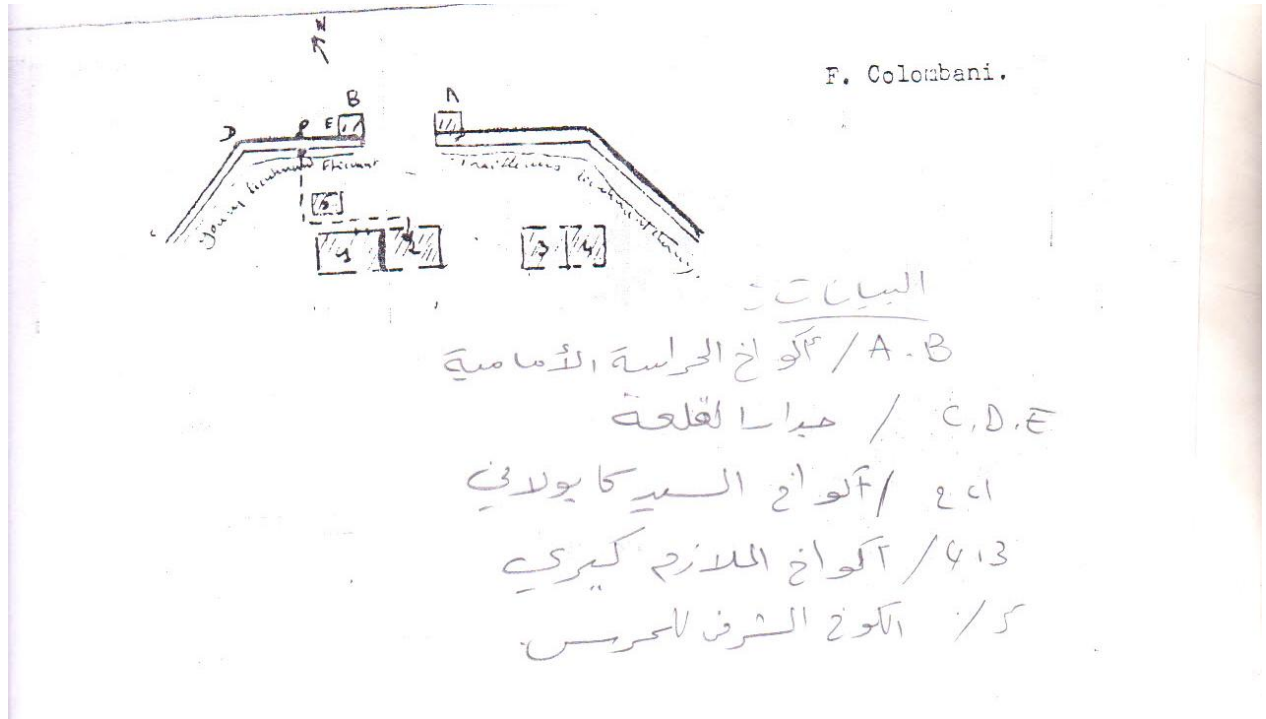 N
F. Colombani.
B A
D P E
5
1 2 3 4
البيانات :
A.B / أكواخ الحراسة الأمامية
C.D.E / جدار القلعة
1، 2 / أكواخ السيد كابولاني
3، 4 / أكواخ الملازم كيري
5 / الكوخ الشرفي للحرس